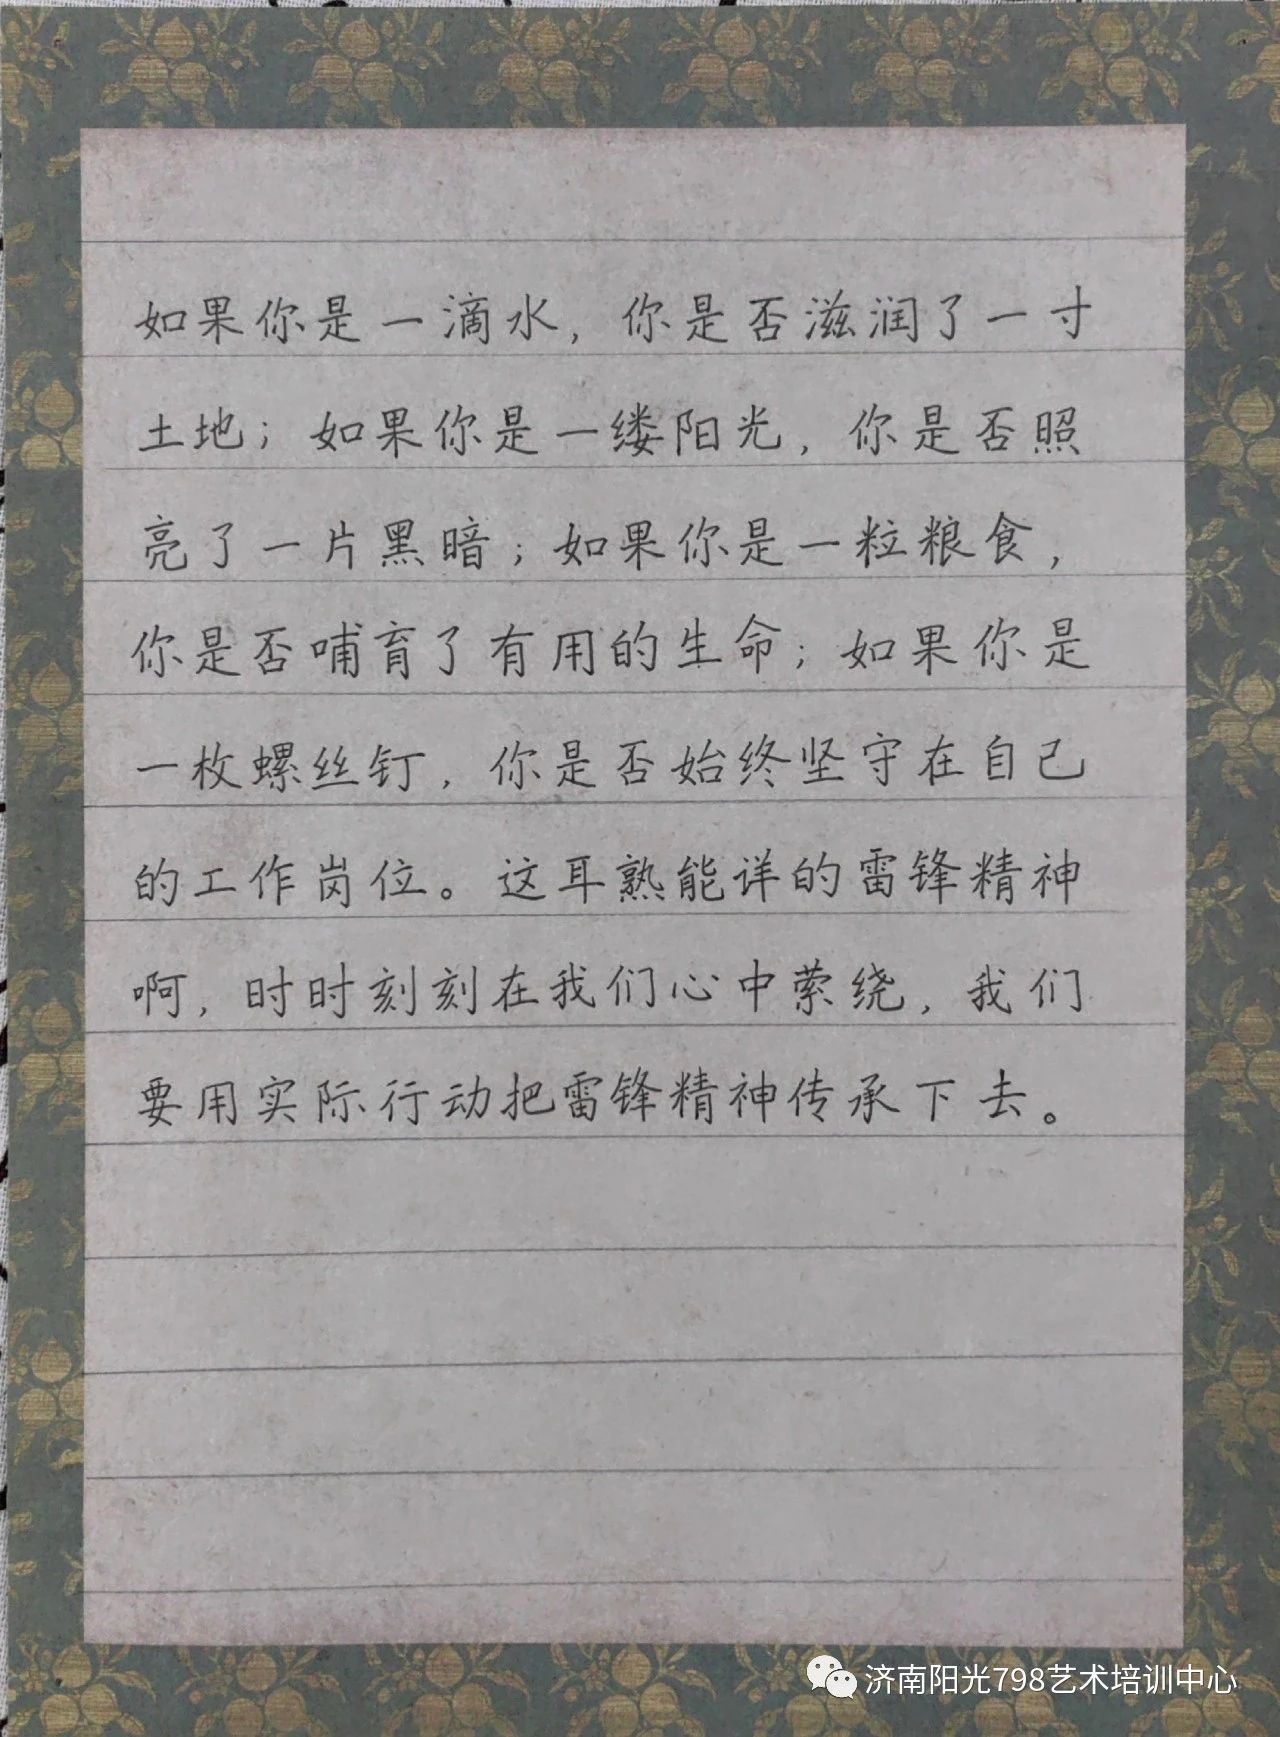 如果你是一滴水，你是否滋润了一寸
土地；如果你是一缕阳光，你是否照
亮了一片黑暗；如果你是一粒粮食，
你是否哺育了有用的生命；如果你是
一枚螺丝钉，你是否始终坚守在自己
的工作岗位。这耳熟能详的雷锋精神
啊，时时刻刻在我们心中萦绕，我们
要用实际行动把雷锋精神传承下去。
济南阳光798艺术培训中心